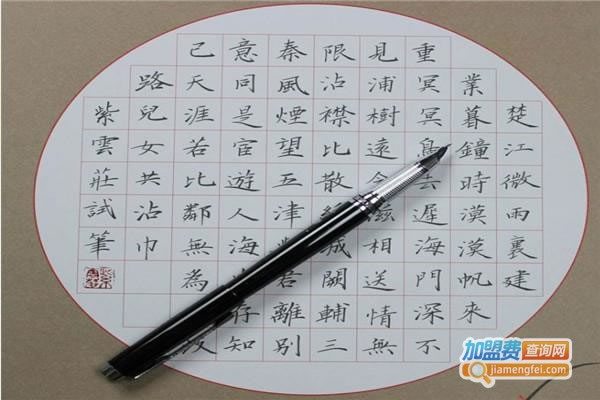 楚江微雨裏建
業暮鐘時漠漠帆來
重冥冥鳥去遲海門深不
見浦樹遠滋相送情無
限沾襟比散城闕輔三
秦風煙望五津君離別
意同是宦遊人海存知
己天涯若比鄰無為
路兒女共沾巾
紫雲莊試筆
加盟费查询网
jiamengfei.com